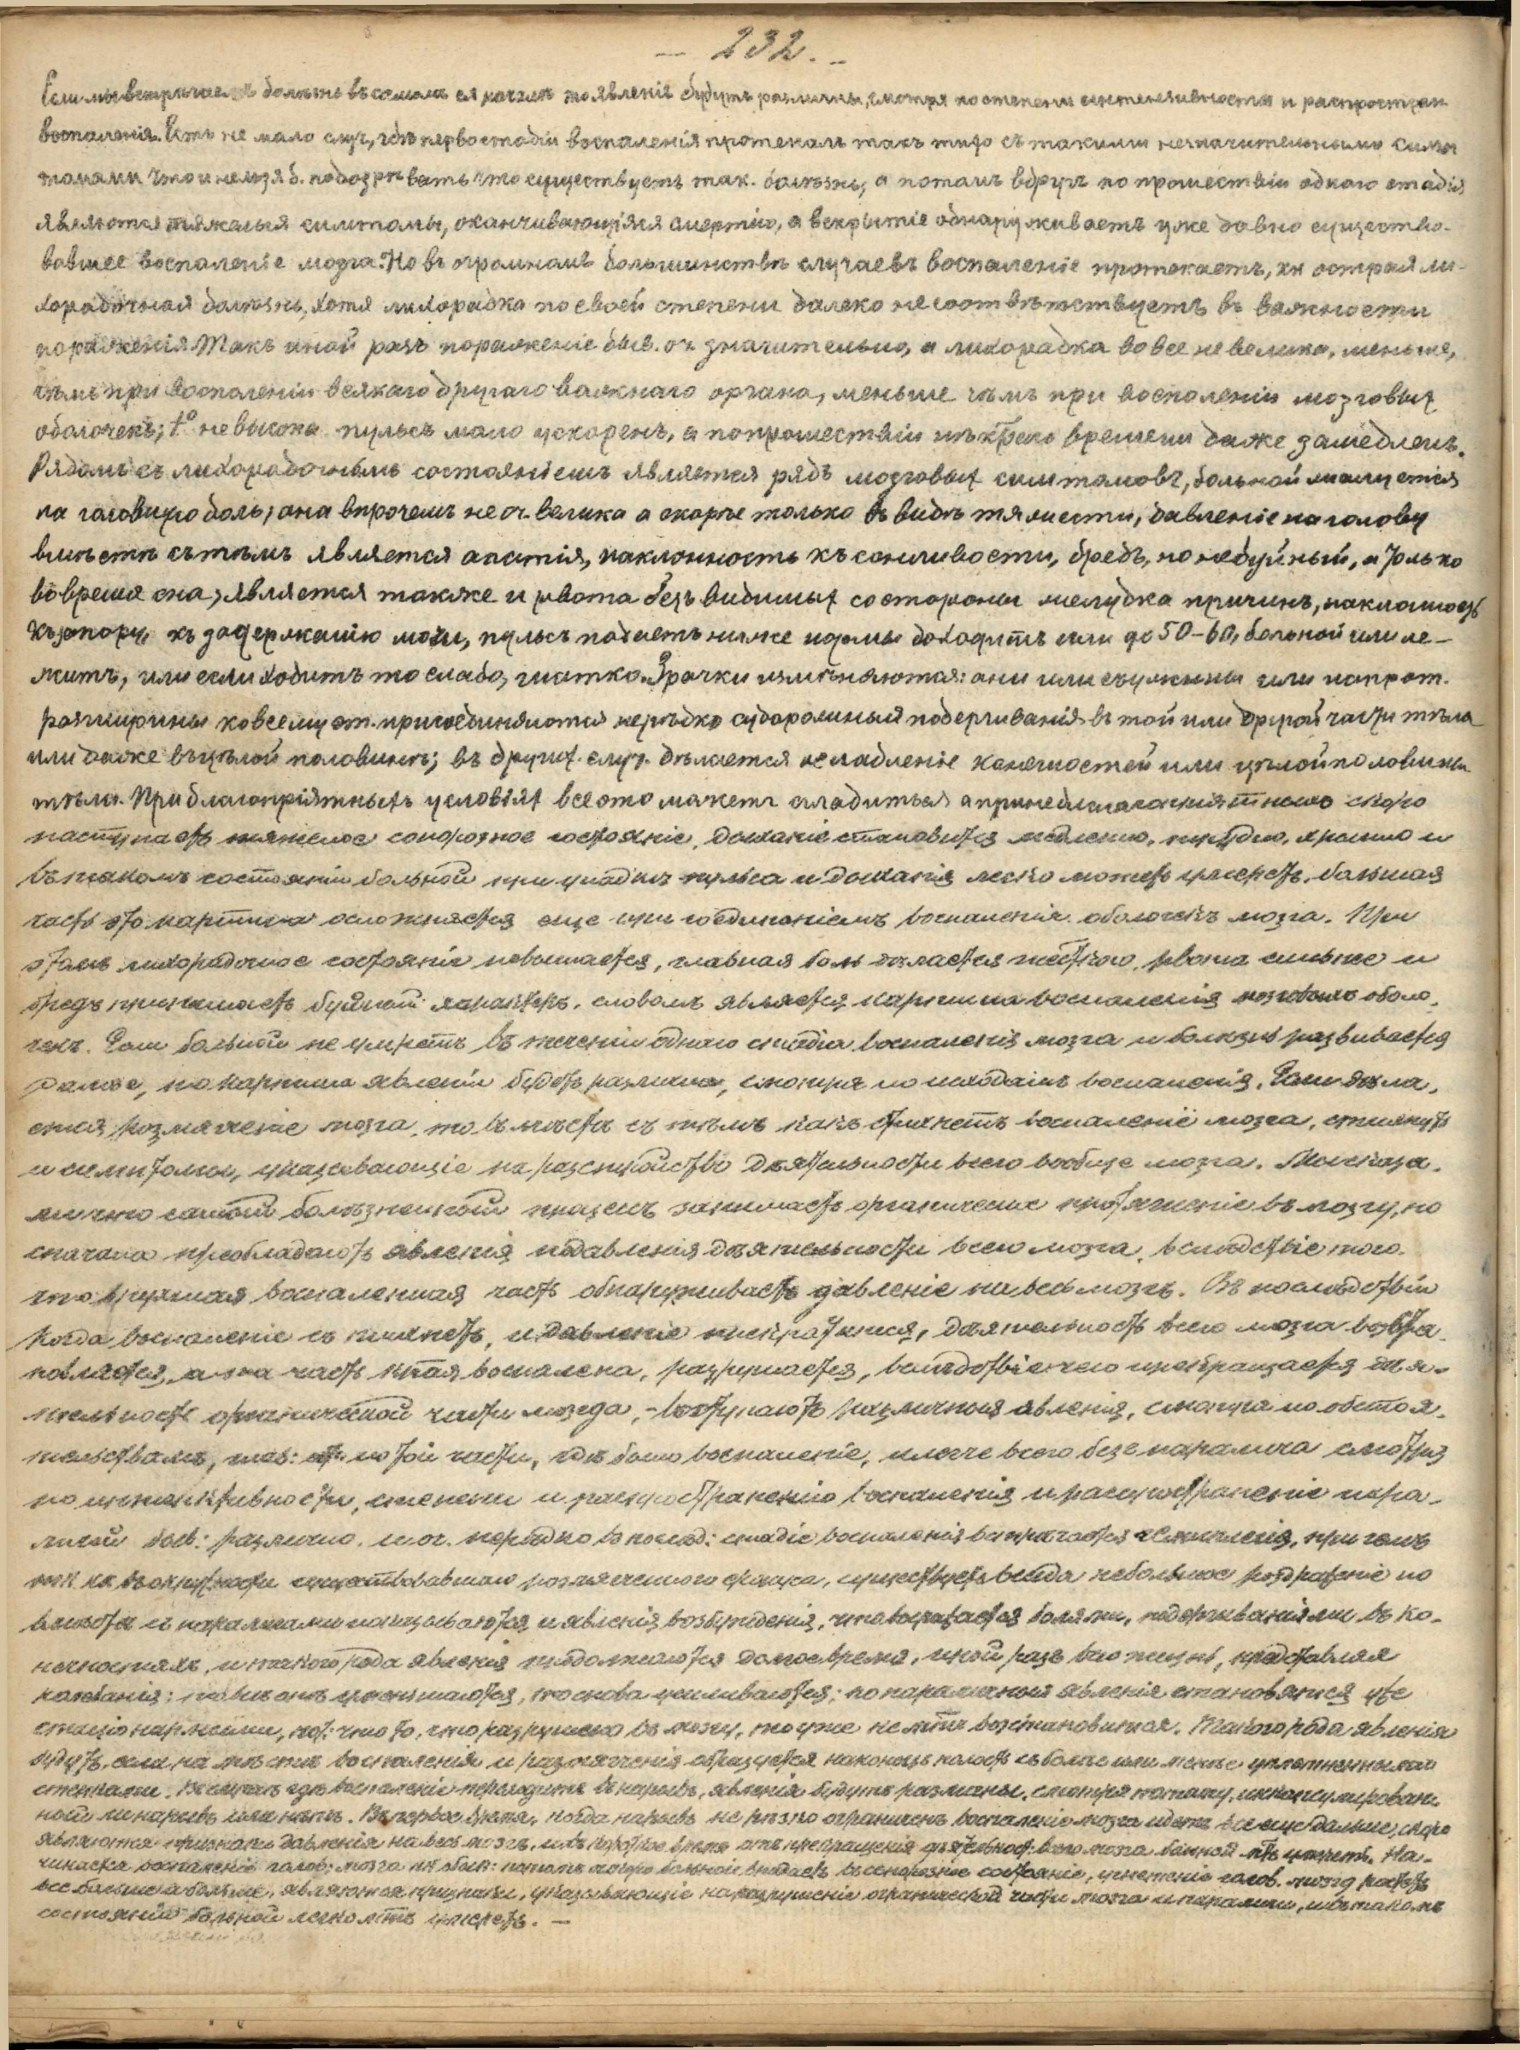 — 232. —
Если мы встрѣчаемъ болѣзнь въ самомъ ея началѣ то явленія будутъ различны, смотря по степени интензивности и распростран
воспаленія. Есть не мало случ, гдѣ первое стадіи воспаленія протекаютъ такъ тихо съ такими незначительными симп
томами что и нельзя б. подозрѣвать что существуетъ так. болѣзнь, а потомъ вдругъ по прошествіи одного стадія
являются тяжелыя симптомы, оканчивающіяся смертію, а вскрытіе обнаруживаетъ уже давно существо-
вавшее воспаленіе мозга. Но въ огромномъ большинствѣ случаевъ воспаленіе протекаетъ, кк острая ли-
хорадочная болѣзнь, хотя лихорадка по своей степени далеко не соотвѣтствуетъ въ важности
пораженія. Такъ иной разъ пораженіе быв. оч значительно, а лихорадка вовсе не велика, меньше,
чѣмъ при воспаленіи всякаго другаго важнаго органа, меньше чѣмъ при воспаленіи мозговыхъ
оболочекъ; t° не высока пульсъ мало ускоренъ, а по прошествіи нѣкраго времени даже замедленъ.
Рядомъ съ лихорадочнымъ состояніемъ является рядъ мозговыхъ симптомовъ, больной жалуется
на головную боль, она впрочемъ не оч. велика а скорѣе только въ видѣ тяжести, давленіе на голову
вмѣстѣ съ тѣмъ является апатія, наклонность къ сонливости, бредъ, но не буйный, а только
во время сна, является также и рвота безъ видимыхъ со стороны желудка причинъ, наклонность
къ запору, къ задержанію мочи, пульсъ падаетъ ниже нормы доходитъ или до 50-60, больной или ле-
житъ, или если ходитъ то слабо, шатко. Зрачки измѣняются: они или съужены или напрот.
расширены ко всему эт. присоединяются нерѣдко судорожныя подергиванія въ той или другой части тѣла
или даже въ цѣлой половинѣ; въ другихъ случ. дѣлается ослабленіе конечностей или цѣлой половины
тѣла. При благопріятныхъ условіяхъ все это можетъ сгладиться а при неблагопріятныхъ скоро
наступаетъ тяжелое сопорозное состояніе, дыханіе становится медленно, трудно, хрипло и
въ такомъ состояніи больной при упадкѣ пульса и дыханія легко можетъ умереть. большая
часть эта картина осложняется еще присоединеніемъ воспаленія оболочекъ мозга. При
этомъ лихорадочное состояніе повышается, главная боль дѣлается жестокою, рвота сильнее и
бредъ принимаетъ буйный характеръ. словомъ является картина воспаленія мозговыхъ оболо-
чекъ. Если больной не умретъ въ теченіи одного стадія воспаленія мозга и болѣзнь развивается
далѣе, то картина явленій будетъ различна, смотря по исходамъ воспаленія. Если дѣла-
ется размягченіе мозга, то вмѣстѣ съ тѣмъ какъ стихнетъ воспаленіе мозга, стихнутъ
и симптомы, указывающіе на разстройство дѣятельности всего вообще мозга. Мы сказа-
ли что самый болѣзненный процесъ занимаетъ ограниченное протяженіе въ мозгу, но
сначала преобладаютъ явленія подавленія дѣятельности всего мозга, вслѣдствіе того
что опухшая воспаленная часть обнаруживаетъ давленіе на весь мозгъ. Въ послѣдствіи
когда воспаленіе стихнетъ, и давленіе прекратится, дѣятельность всего мозга возста-
новляется, а та часть ктая воспалена, разрушается, вслѣдствіе чего прекращается дѣя-
тельность ограниченной части мозга, – выступаютъ различныя явленія, смотря по обстоя-
тельствамъ, глав: по той части, гдѣ было воспаленіе, и легче всего безъ паралича смотря
по интензивности, степени и распространенію воспаленія и распространеніе пара-
личей быв: различно. и оч. нерѣдко въ послѣд: стадіе воспаленія встрѣчается гемиплегія, при чемъ
тк кк въ окружности существовавшаго размягченнаго фокуса, существуетъ всегда небольшое раздраженіе то
вмѣстѣ съ параличами показываются и явленія возбужденія, что выражается болями, подергиваніями въ ко-
нечностяхъ, и такого рода явленія продолжаются долгое время, иной разъ всю жизнь, представляя
колебанія: то въ иномъ уменьшаются, то снова усиливаются; но параличныя явленія становятся уже
стаціонарными, пот: что то, что разрушено въ мозгу, то уже не мтъ возстановиться. Такого рода явленія
будутъ, если на мѣстѣ воспаленія и размягченія образуется наконецъ полость съ болѣе или менѣе уплотненными
стѣнками. Въ случаѣ гдѣ воспаленіе переходитъ въ нарывъ, явленія будутъ различны, смотря потому, инкапсулирован-
ный ли нарывъ или нѣтъ. Въ первое время, когда нарывъ не рѣзко ограниченъ воспаленіе мозга идетъ все еще дальше, скоро
являются признаки давленія на весь мозгъ, и въ короткое время отъ прекращенія дѣятельност: всего мозга больной мтъ умереть. На-
чинается воспаленіе голов: мозга кк обык: потомъ скоро больной впадаетъ въ сопорозное состояніе, угнетеніе голов. мозга растетъ
все больше и больше, являются признаки, указывающіе на разрушеніе ограниченной части мозга и параличи, и въ такомъ
состояніи больной легко мтъ умереть. —